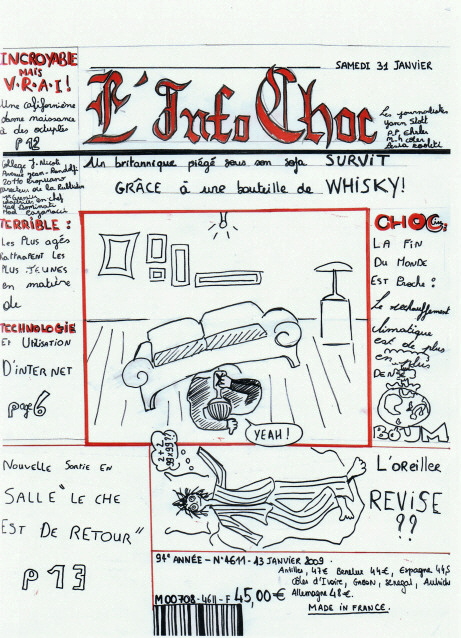 INCROYABLE
MAIS
V·R·A·I !
Une californienne
donne naissance
à des octuplés
P 12
SAMEDI 31 JANVIER
L'Info Choc
Les journalistes
Collège J. Nicoli
Un britannique piégé sous son sofa SURVIT
GRÂCE à une bouteille de WHISKY!
TERRIBLE :
Les Plus agés
Rattrapent les
Plus Jeunes
en matière
de
TECHNOLOGIE
ET Utilisation
D'INTERNET
page 6
YEAH !
CHOC
LA FIN
DU MONDE
EST Proche :
Le réchauffement
climatique
est de plus
en plus
DENSE
BOUM
Nouvelle Sortie en
SALLE "LE CHE
EST DE RETOUR"
P 13
2+2
99x99??
L'OREILLER
REVISE
??
94e ANNÉE - N°4611 - 13 JANVIER 2009
Antilles, 47€ Benelux 44€, Espagne 44,5
Côtes d'Ivoire, GABON, Senegal, Autriche
Allemagne 48€.
M 00708 - 4611 - F 45,00€
MADE IN FRANCE.